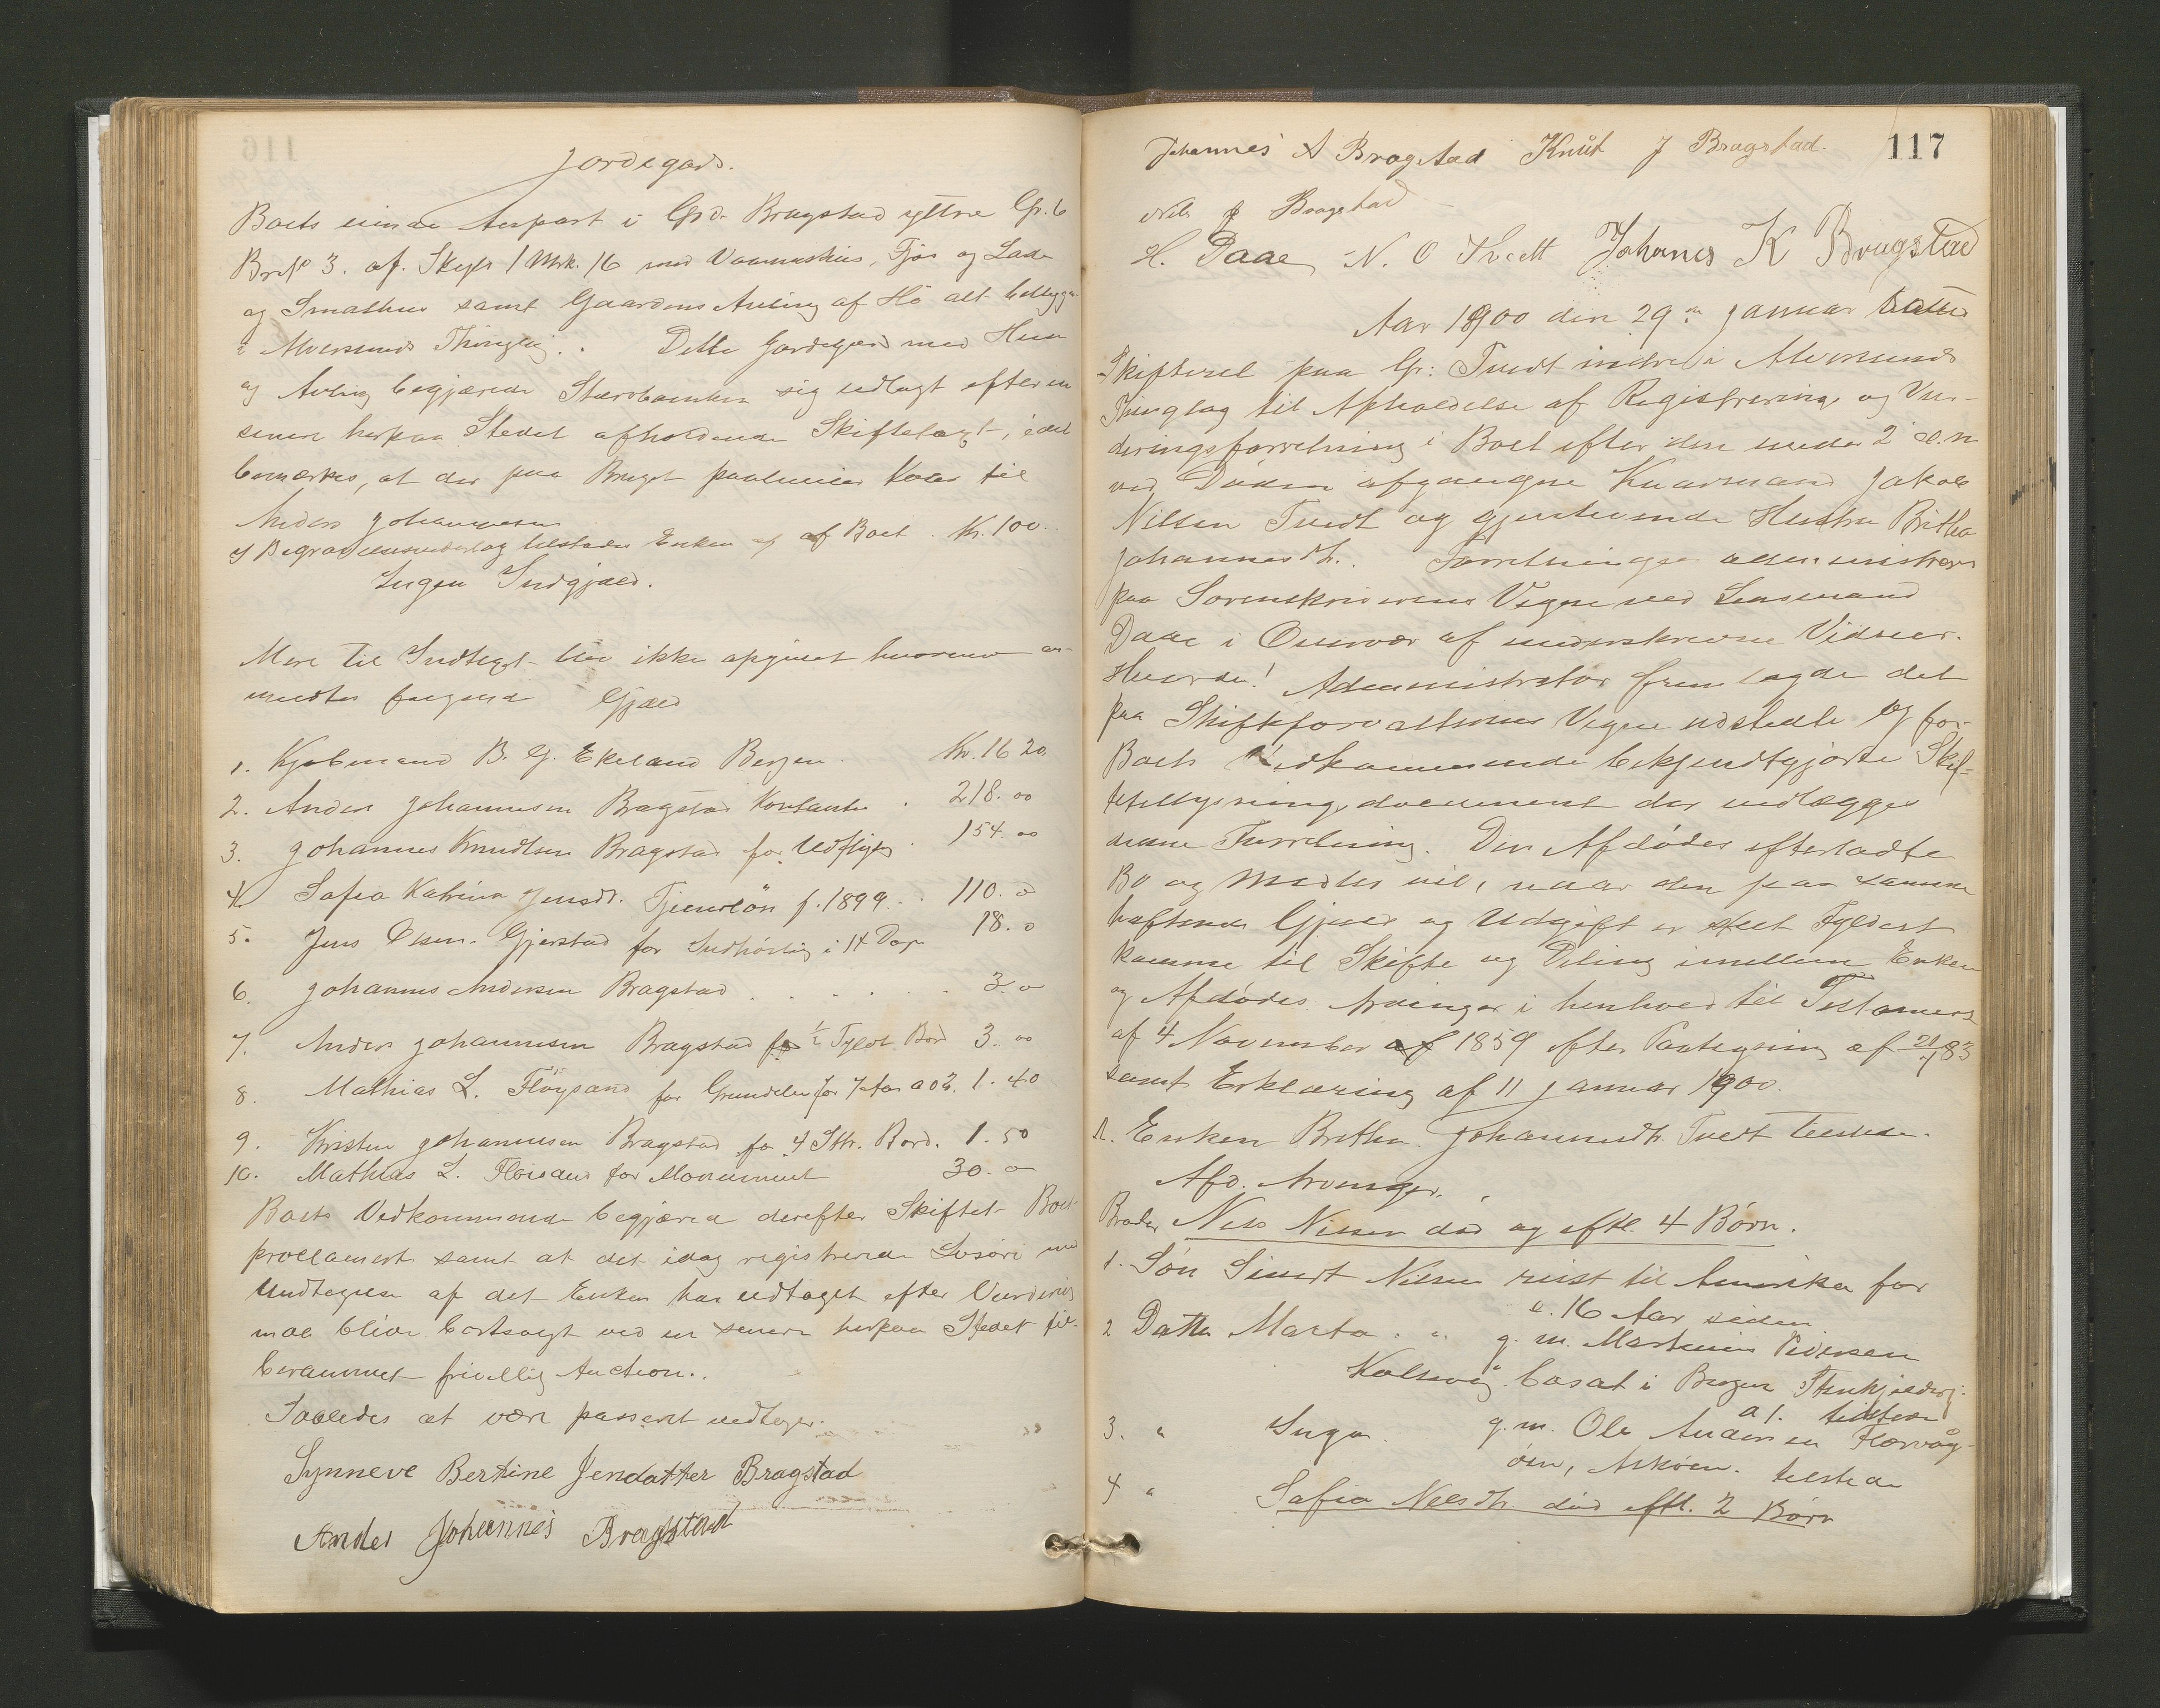 Jordegods.
Boets eiende Anpart i Grd. Bragstad yttre Gr. 6
Brs No 3. af Skyld 1 Mrk. 16 med Vaaningshus, Fjös og Lade
og Smaahus samt Gaardens Avling af Hö alt beliggende
i Alversunds Thinglag. Dette Jordegods med Huse
og Avling begjærede Stervboenken sig udlagt efter en
senere herpaa Stedet afholdende Skiftetaxt, idet
bemærkes, at der paa Bruget paahviler Kaar til
Anders Johannesen
I Begravelsesudlæg tilstaaes Enken af Boet . Kr. 100.
Ingen Indgjæld.
Mere til Indtægt blev ikke opgivet hvorimod an-
meldtes følgende Gjæld
1. Kjøbmand B. G. Ekeland Bergen . Kr. 16 20
2. Anders Johannesen Bragstad Kontanter . 218. 00
3. Johannes Knudtsen Bragstad for Udflytn. . 154. 00
4. Safia Katrina Jensdt. Tjenerlön f. 1899 . . 110. 0
5. Jens Olsen Gjerstad for Indhöstning i 14 Dage 18. 0
6. Johannes Andersen Bragstad . . . . . . 3. 0
7. Anders Johannesen Bragstad for ½ Tylvt Bord 3. 00
8. Mathias L. Flöysand for Grundeleie for 7 Aar a 02. 1. 40
9. Kristen Johannesen Bragstad for 4 Stk. Bord. 1. 50
10. Mathias L. Flöisand for Monument 30. 0
Boets Vedkommende begjærede derefter Skiftet Boet
proclameret samt at det idag registrerede Lösöre med
Undtagelse af det Enken har udtaget efter Vurdering
maa blive bortsolgt ved en senere herpaa Stedet
berammet frivillig Auction.
Saaledes at være passeret vedtages.
Synneve Bertine Jendatter Bragstad
Ander Johannes Bragstad
117
Johannes A Bragstad Knut J Bragstad.
Nils J Bragstad
H. Daae N. O Tvedt Johanes K Bragstad
Aar 1900 den 29de Januar sattes
Skifteret paa Gr: Tvedt indre i Alversunds
Thinglag til Afholdelse af Registrerings og Vur-
deringsforretning i Boet efter den under 2 d.m
ved Döden afgangne Kaarmand Jakob
Nilsen Tvedt og gjenlevende Hustru Britha
Johannesdt. Forretningen administreres
paa Sorenskriverens Vegne ved Lensmand
Daae i Overvær af underskrevne Vidner.
Hvorda! Administrator fremlagde det
paa Skifteforvalterens Vegne udstedte og for
Boets Vedkommende bekjendtgjorte Skif-
tetillysningsdocument der vedlægges
denne Forretning. Den Afdödes efterladte
Bo og Midler vil, naar den paa samme
heftende Gjæld og Udgift er skeet Fyldest
komme til Skifte og Deling imellem Enken
og Afdödes Arvinger i henhold til Testament
af 4 November af 1859 efter Paategning af 21/7 83
samt Erklæring af 11 Januar 1900.
A. Enken Britha Johannesdt. Tvedt tilstede.
Afd. Arvinger.
Broder Nils Nilsen död og eftl. 4 Börn.
1. Sön Sivert Nilsen reist til Amerika for
c. 16 Aar siden.
2 Datter Marta . " g. m. Martinius Pedersen
Kolsvig bosat i Bergen
a 1. tilstede
3. " Inga. g. m. Ole Andersen Florvåg-
öen, Asköen. tilstede
4 " Safia Nilsdt. död eftl. 2 Börn